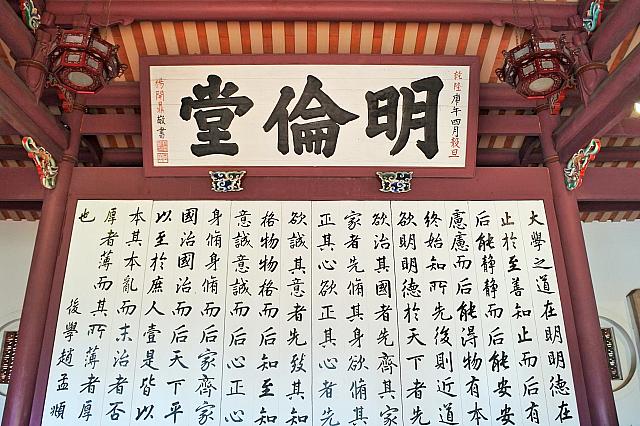 乾隆庚午四月穀旦
明倫堂
楊開鼎敬書
大學之道在明明德在
止於至善知止而后有
后能静静而后能安安
慮慮而后能得物有本
終始知所先後則近道
欲明明德於天下者先
欲治其國者先齊其家
家者先脩其身欲脩其
正其心欲正其心者先
欲誠其意者先致其知
格物物格而后知至知
意誠意誠而后心正心
身脩身脩而后家齊家
國治國治而后天下平
以至於庶人壹是皆以
本其本亂而末治者否
厚者薄而其所薄者厚
也
後學趙孟頫